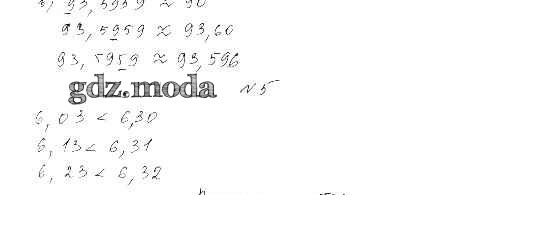 93,5959 ≈ 90
93,5959 ≈ 93,60
93,5959 ≈ 93,596
gdz.moda № 5
6,03 < 6,30
6,13 < 6,31
6,23 < 6,32